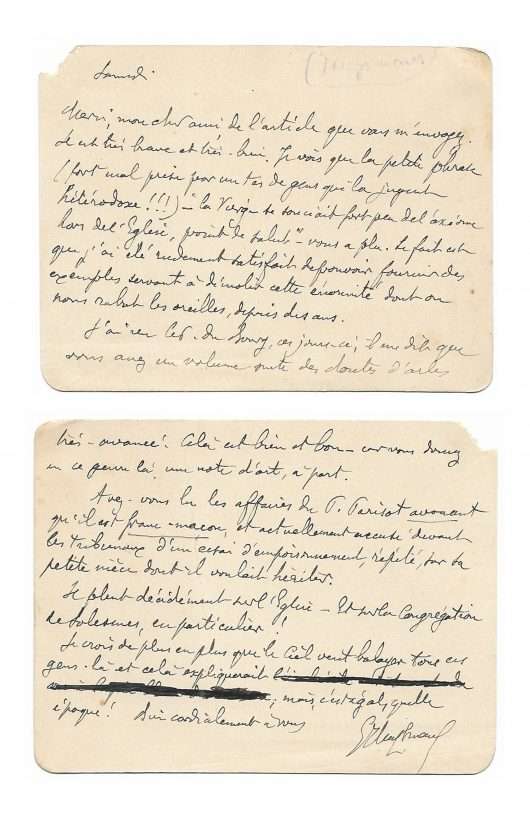 Samedi
Merci, mon cher ami de l'article que vous m'envoyez.
Il est très brave et très-bien. Je vois que la petite phrase
(fort mal prise par un tas de gens qui la jugent
hétérodoxe !!!) – "la Vierge se souciait fort peu de l'axiome
hors de l'Eglise, point de salut" – vous a plu. Le fait est
que j'ai été rudement satisfait de pouvoir fournir des
exemples servant à démolir cette énormité dont on
nous rabat les oreilles, depuis des ans.
J'ai vu du Bourg, ces jours-ci; il me dit que
vous avez un volume suite des contes d'
très-avancé. Celà est bien et bon – car vous donnez
en ce genre là une note d'art, à part.
Avez-vous lu les affaires du P. Parisot avouant
qu'il est franc-maçon, et actuellement accusé devant
les tribunaux d'un essai d'empoisonnement, répété, sur sa
petite nièce dont il voulait hériter.
Il pleut décidément sur l'Eglise – Et sur la Congrégation
de Solesmes, en particulier !
Je crois de plus en plus que le Ciel veut balayer tous ces
gens-là et celà expliquerait
; mais c'est égal, quelle
époque ! Bien cordialement à vous
GHuysmans